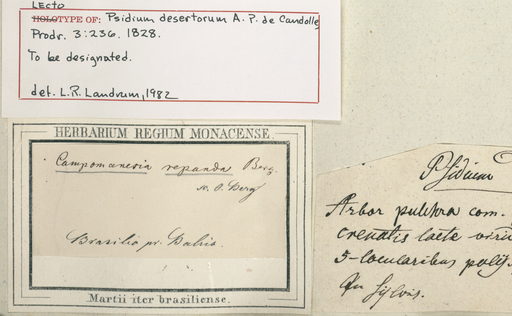 LECTO
HOLOTYPE OF: Psidium desertorum A. P. de Candolle
Prodr. 3:236. 1828.
To be designated.
det. L.R. Landrum, 1982
HERBARIUM REGIUM MONACENSE.
Campomanesia repanda Berg.
O. Berg
Brasilia pr. Bahia.
Martii iter brasiliense.
Psidium
Arbor pulchra com.
crenatis laete viri
5-locularibus poly
In sylvis.